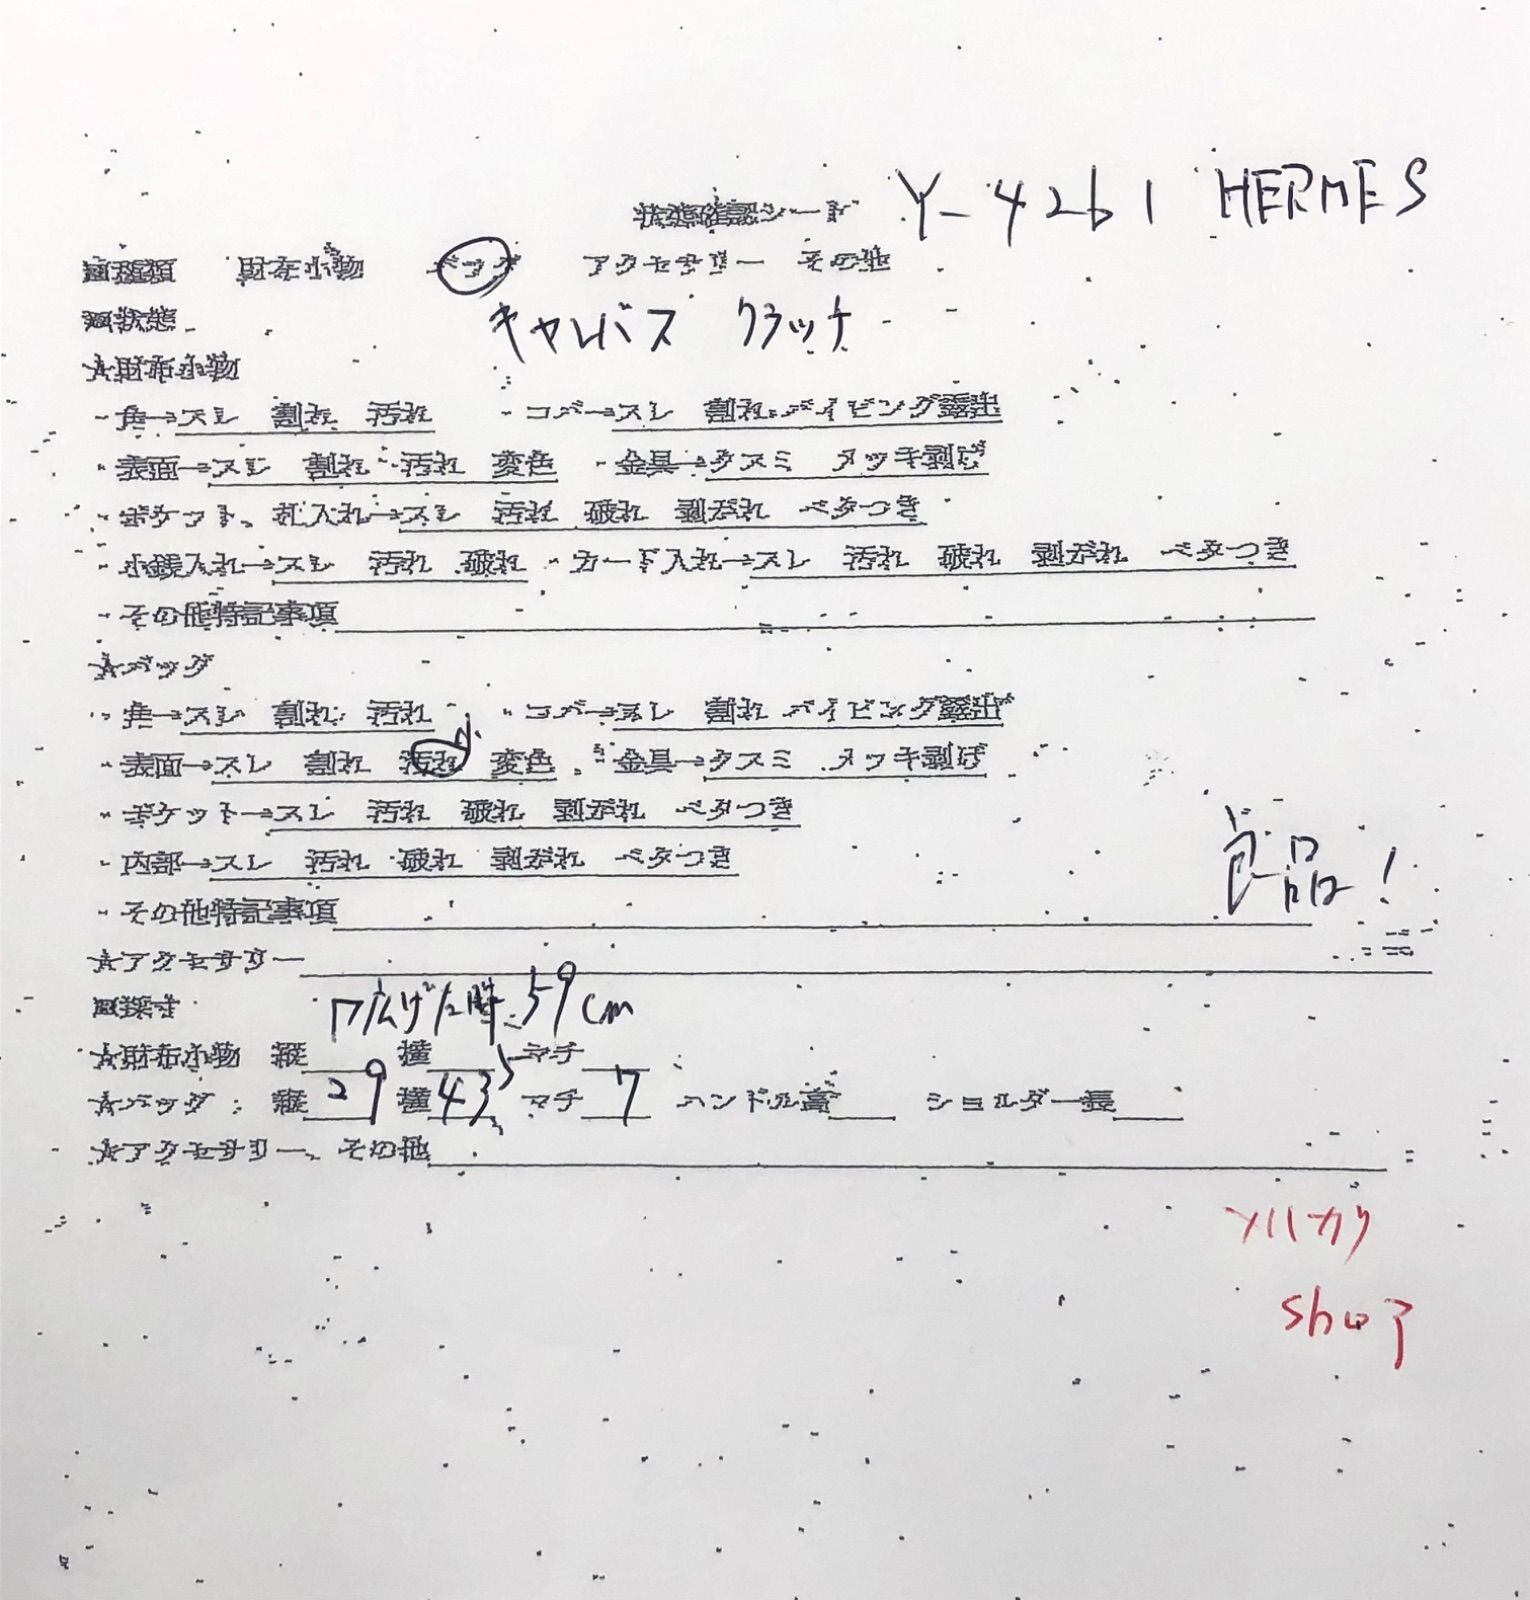 状態確認シート Y-4261 HERMES
□種類 財布小物 バッグ アクセサリー その他
□状態 キャンバス クラッチ
☆財布小物
・角→スレ 割れ 汚れ ・コバ→スレ 割れ パイピング露出
・表面→スレ 割れ 汚れ 変色 ・金具→クスミ メッキ剥げ
・ポケット、札入れ→スレ 汚れ 破れ 剥がれ ベタつき
・小銭入れ→スレ 汚れ 破れ ・カード入れ→スレ 汚れ 破れ 剥がれ ベタつき
・その他特記事項
☆バッグ
・角→スレ 割れ 汚れ ・コバ→スレ 割れ パイピング露出
・表面→スレ 割れ 汚れ 小 変色 ・金具→クスミ メッキ剥げ
・ポケット→スレ 汚れ 破れ 剥がれ ベタつき
・内部→スレ 汚れ 破れ 剥がれ ベタつき
良品!
・その他特記事項
☆アクセサリー
□採寸 口広げた時 59cm
☆財布小物 縦 横 マチ
☆バッグ 縦 29 横 43.5 マチ 7 ハンドル高 ショルダー長
☆アクセサリー、その他